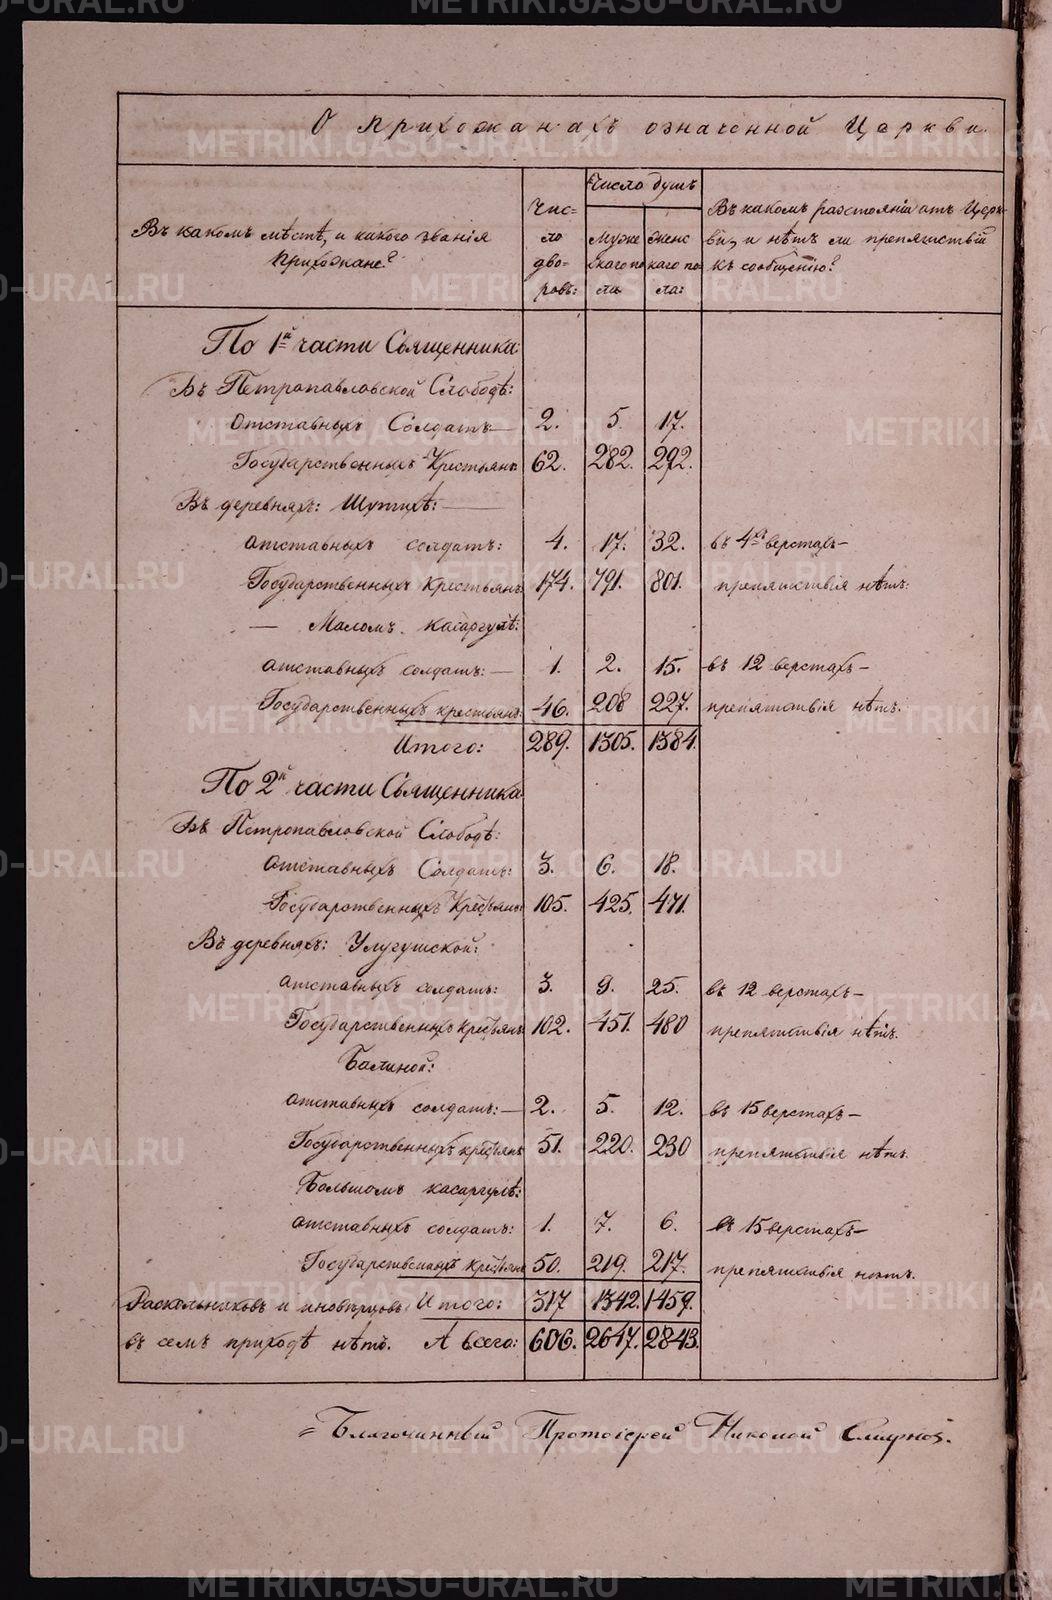 О прихожанахъ означенной Церкви.
Въ какомъ мѣстѣ, и какого званія
прихожане?
Чис-
ло
дво-
ровъ:
Число душъ
Муже
скаго по
ла
Женс
каго по
ла:
Въ какомъ разстояніи отъ Церк-
ви, и нѣтъ ли препятствій
къ сообщенію?
По 1й части Священника
Въ Петропавловской Слободѣ:
отставныхъ Солдатъ— 2. 5. 17.
Государственныхъ Крестьянъ 62. 282. 292.
Въ деревняхъ: Шутихѣ:—
отставныхъ солдатъ: 4. 17. 32. въ 4хъ верстахъ—
Государственныхъ крестьянъ: 174. 791. 801. препятствія нѣтъ.
— Маломъ касаргулѣ:
отставныхъ солдатъ:— 1. 2. 15. въ 12 верстахъ—
Государственныхъ крестьянъ: 46. 208 227. препятствія нѣтъ.
Итого: 289. 1305. 1384.
По 2й части Священника
Въ Петропавловской Слободѣ:
отставныхъ Солдатъ: 3. 6. 18.
Государственныхъ Крестьянъ: 105. 425. 471.
Въ деревняхъ: Улугушской:
отставныхъ солдатъ: 3. 9. 25. въ 12 верстахъ—
Государственныхъ крестьянъ 102. 451. 480 препятствія нѣтъ.
Балиной:
отставныхъ солдатъ:— 2. 5. 12. въ 15 верстахъ—
Государственныхъ крестьянъ 51. 220. 230 препятствія нѣтъ.
Большомъ касаргулѣ:
отставныхъ солдатъ: 1. 7. 6. въ 15 верстахъ—
Государственныхъ крестьянъ 50. 219. 217. препятствія нѣтъ.
Раскольниковъ и иновѣрцовъ Итого: 317 1342. 1459.
въ семъ приходѣ нѣтъ. А всего: 606. 2647. 2843.
Благочинный Протоіерей Николай Смирновъ.
METRIKI.GASO-URAL.RU